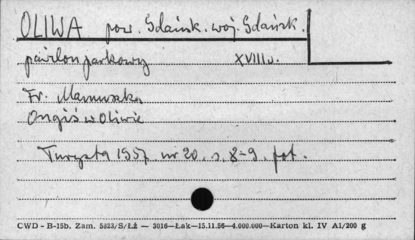 OLIWA pow. Gdańsk. woj. Gdańsk.
pawilon parkowy XVIII w.
Fr. Mamuszka
Ongiś w Oliwie
Turysta 1957 nr 20. s. 8-9. fot.
CWD - B-15b. Zam. 5523/S/ŁŻ — 3016—Łak—15.11.56—4.000.000—Karton kl. IV A1/200 g